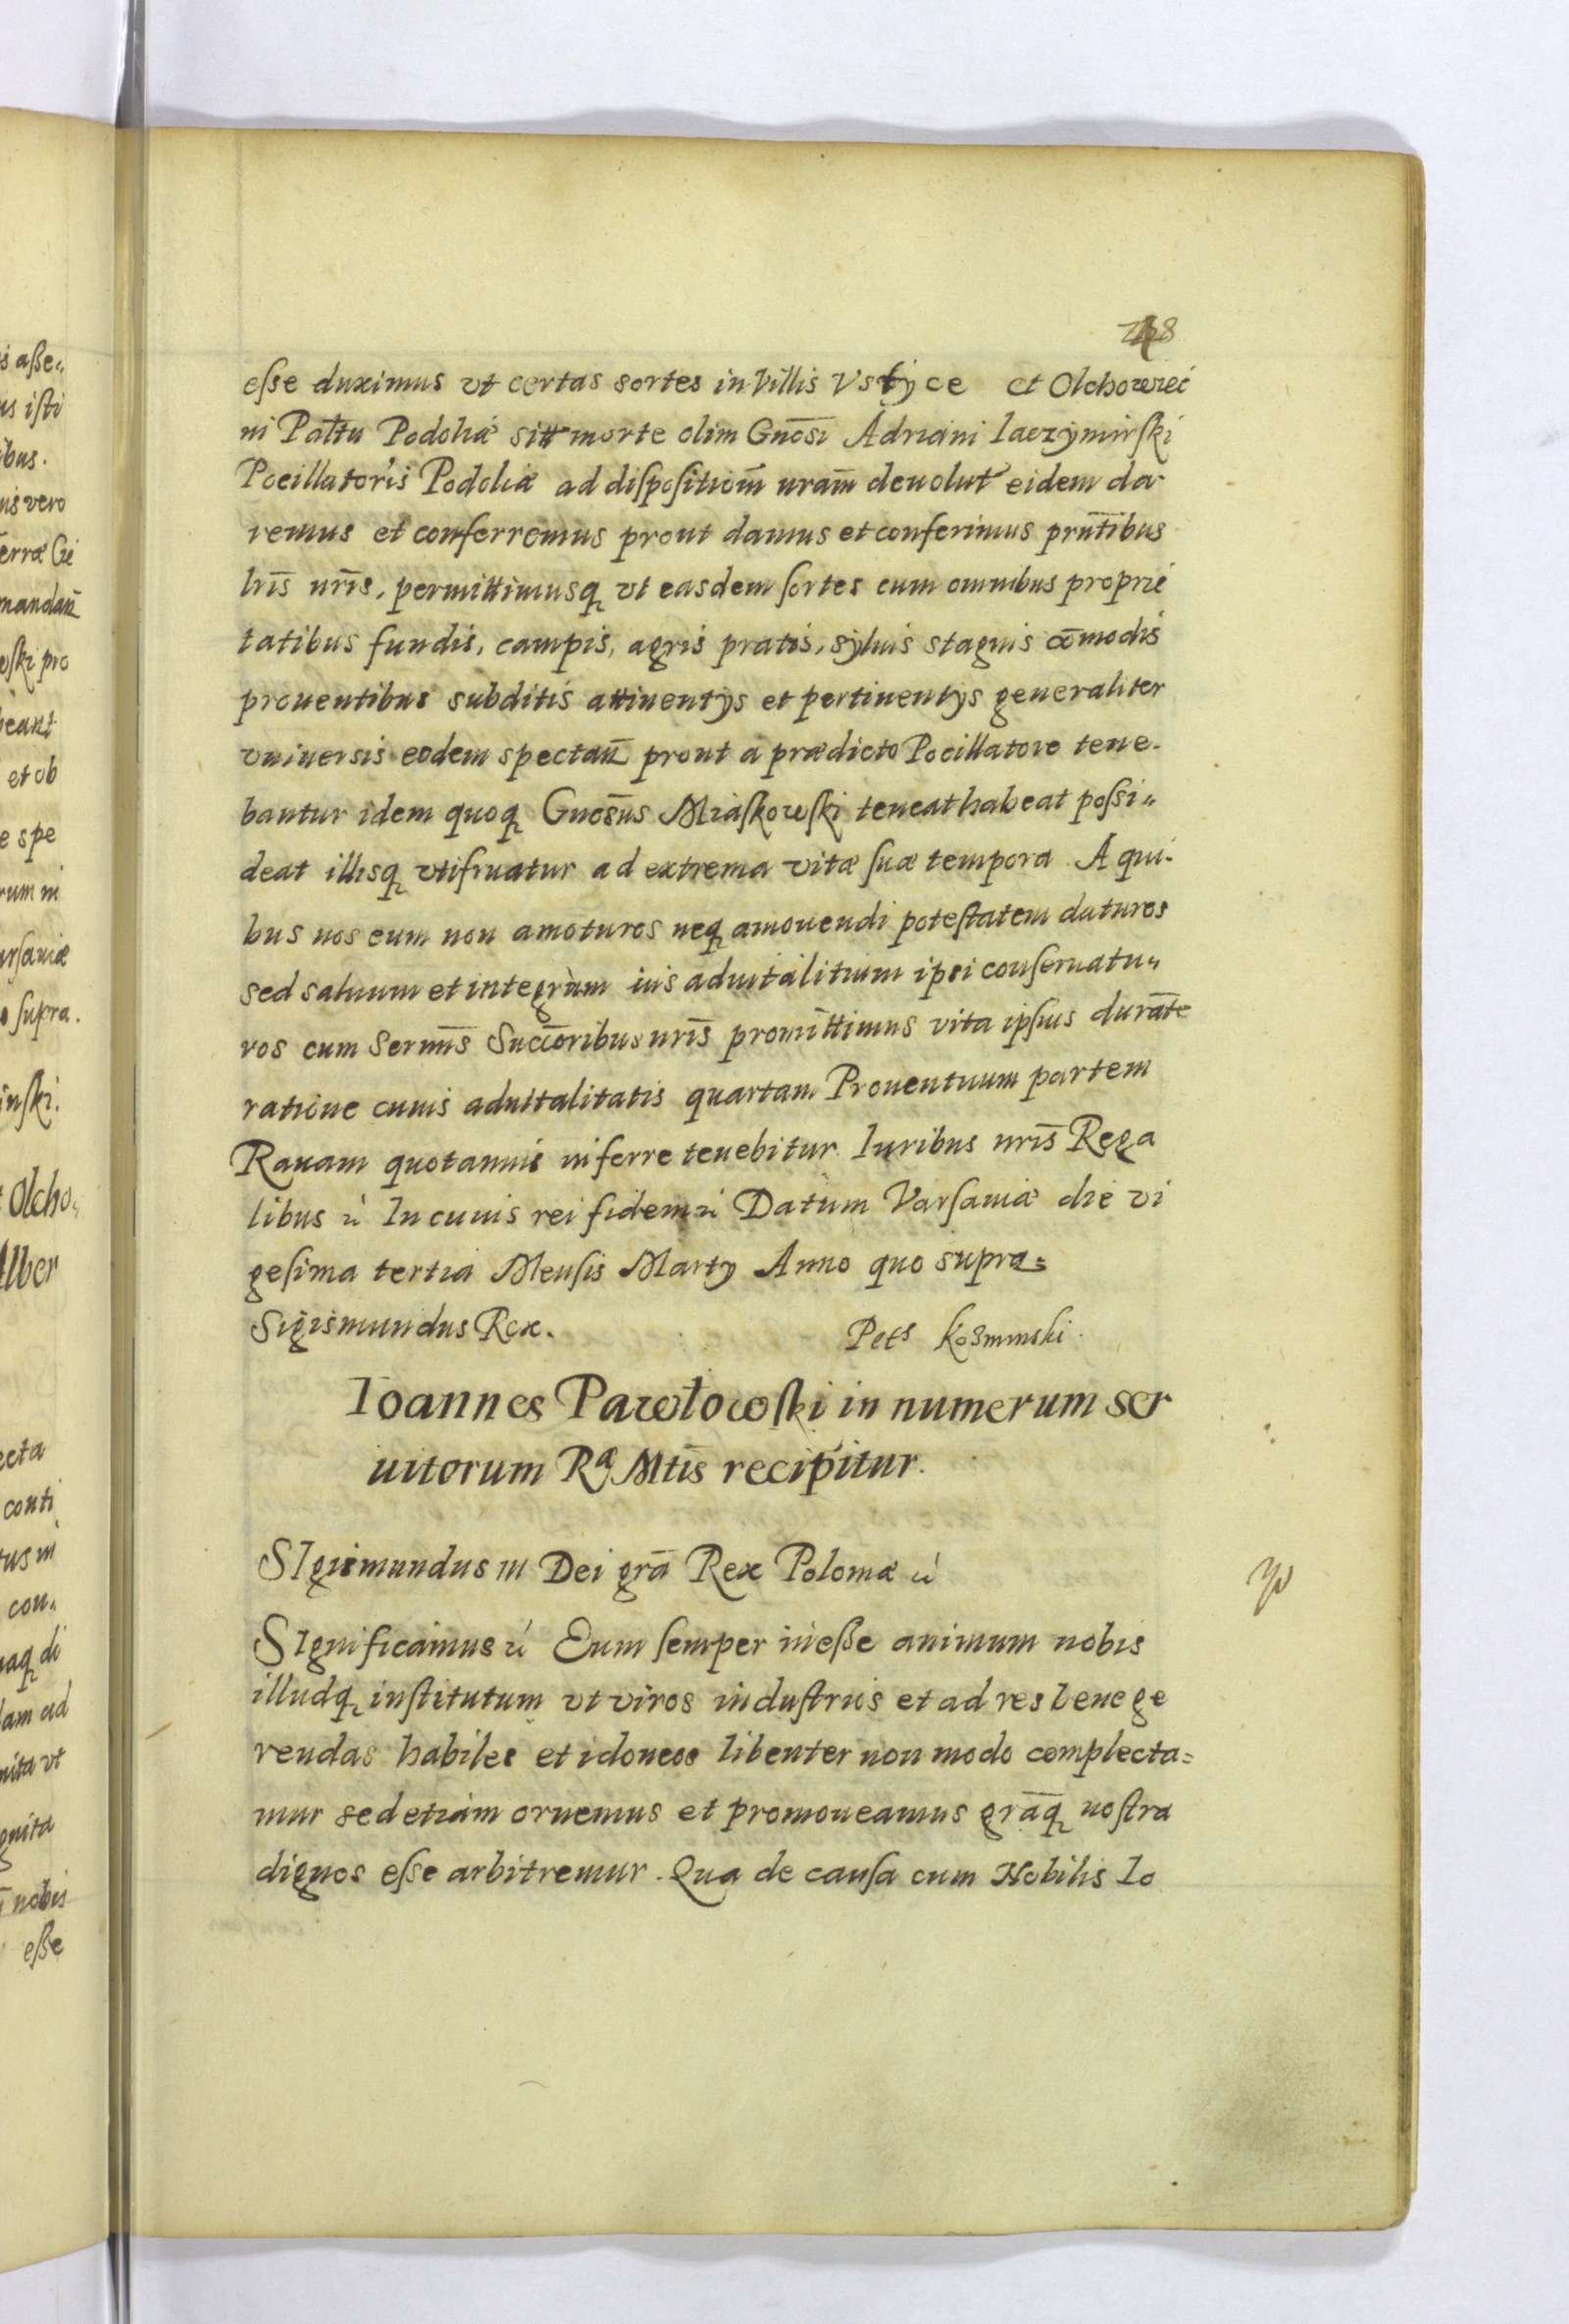 esse duximus vt certas sortes in Villis Vstyce et Olchowiec
in Palttu Podoliæ sitt morte olim Gnōsi Adriani Iaczymirski
Pocillatoris Podoliæ ad dispositiom̄ nram̄ deuolut eidem da-
remus et conferremus prout damus et conferimus prn̄tibus
lrīs nrīs, permittimusq vt easdem sortes cum omnibus proprie
tatibus fundis, campis, agris pratis, syluis stagnis com̄odis
prouentibus subditis attinentys et pertinentys generaliter
vniuersis eodem spectan̄ prout a prædicto Pocillatore tene-
bantur idem quoq Gnosūs Miaskowski teneat habeat possi-
deat illisq vtifruatur ad extrema vitæ suæ tempora A qui-
bus nos eum non amoturos neq amouendi potestatem daturos
sed saluum et integrum ius aduitalitium ipsi conseruatu-
ros cum Sermīs Succōribus nrīs promittimus vita ipsius durāte
ratione cuius aduitalitatis quartam Prouentuum partem
Rauam quotannis inferre tenebitur Iuribus nrīs Rega
libus ú In cuius rei fidem ú Datum Varsauiæ die vi
gesima tertia Mensis Marty Anno quo supra=
Sigismundus Rex. Pets Kosminski.
Ioannes Pawłowski in numerum ser
uitorum Ra Mtīs recipitur.
SIgismundus III Dei grā Rex Poloniæ ú
SIgnificamus ú Eum semper inesse animum nobis
illudq institutum vt viros industrios et ad res bene ge
rendas habiles et idoneos libenter non modo complecta=
mur sed etiam ornemus et promoueamus grāq nostra
dignos esse arbitremur. Qua de causa cum Nobilis Io